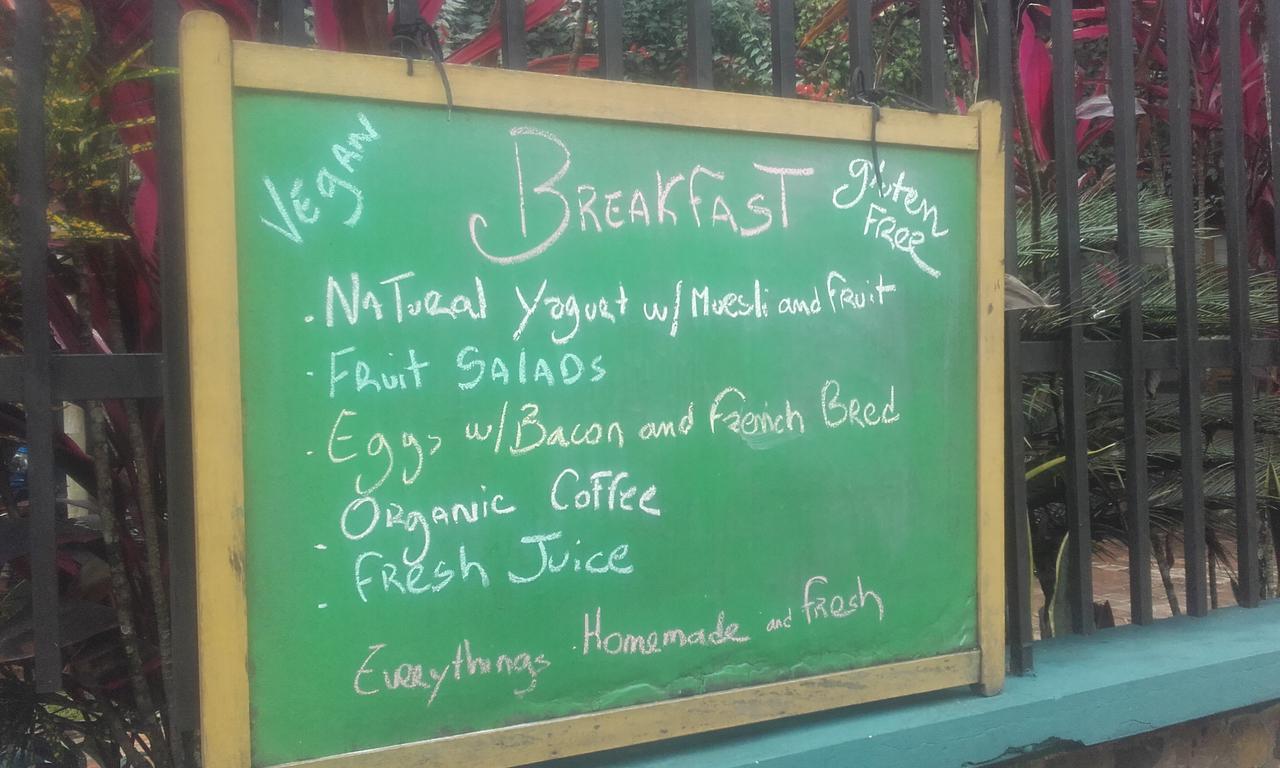 VEGAN
BREAKFAST
gluten
FREE
. NATural Yogurt w/ Muesli and fruit
. FRuit SALADS
. Eggs w/ Bacon and french BRed
. ORganic Coffee
. FREsh Juice
Everythings Homemade and fresh